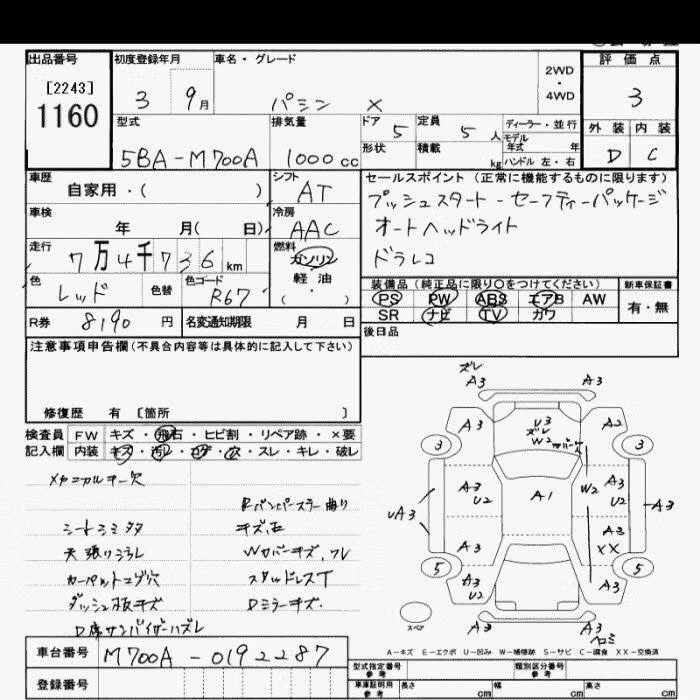 出品番号
[2243]
1160
初度登録年月
3 9月
車名・グレード
パッソ X
2WD
・
4WD
評価点
3
外装 内装
D C
型式
5BA-M700A
排気量
1000cc
ドア 5
定員 5人
形状
積載 kg
ディーラー・並行
モデル年式 年
ハンドル 左・右
車歴
自家用・( )
シフト
AT
セールスポイント(正常に機能するものに限ります)
プッシュスタート-セーフティーパッケージ
オートヘッドライト
ドラレコ
車検
年 月( 日)
冷房
AAC
走行
7万4千736km
燃料
ガソリン
軽油
( ・ )
色
レッド
色替
色コード
R67
装備品(純正品に限り○をつけてください)
新車保証書
PS PW ABS エアB AW
SR ナビ TV カワ
有・無
R券 8190円
名変通知期限 月 日
後日品
注意事項申告欄(不具合内容等は具体的に記入して下さい)
修復歴 有 [箇所 ]
検査員 FW キズ・飛石・ヒビ割・リペア跡・×要
記入欄 内装 キズ・汚レ・コゲ・穴・スレ・キレ・破レ
メカニカルキー欠
Rバンパースラー曲り
シートシミタタ
キズ、石
天張りヨゴレ
Wカバーキズ、ワレ
カーペットコゲ穴
スタルドレスT
ダッシュ板キズ
Dミラーキズ.
D席サンバイザーハズレ
ズレ
A3 A3
A3 U3 A2
ズレ
W2
3 3
A3 U2 A1 W2 A3 U2
UA3 A3
A3 A3
XX
5 5
A3 U2 A3
スペア
A3 A3
A-キズ E-エクボ U-凹み W-補修跡 S-サビ C-腐食 XX-交換済
車台番号
M700A-0192287
登録番号
型式指定番号 参考
類別区分番号 参考
車庫証明用 参考 長さ cm 幅 cm 高さ cm